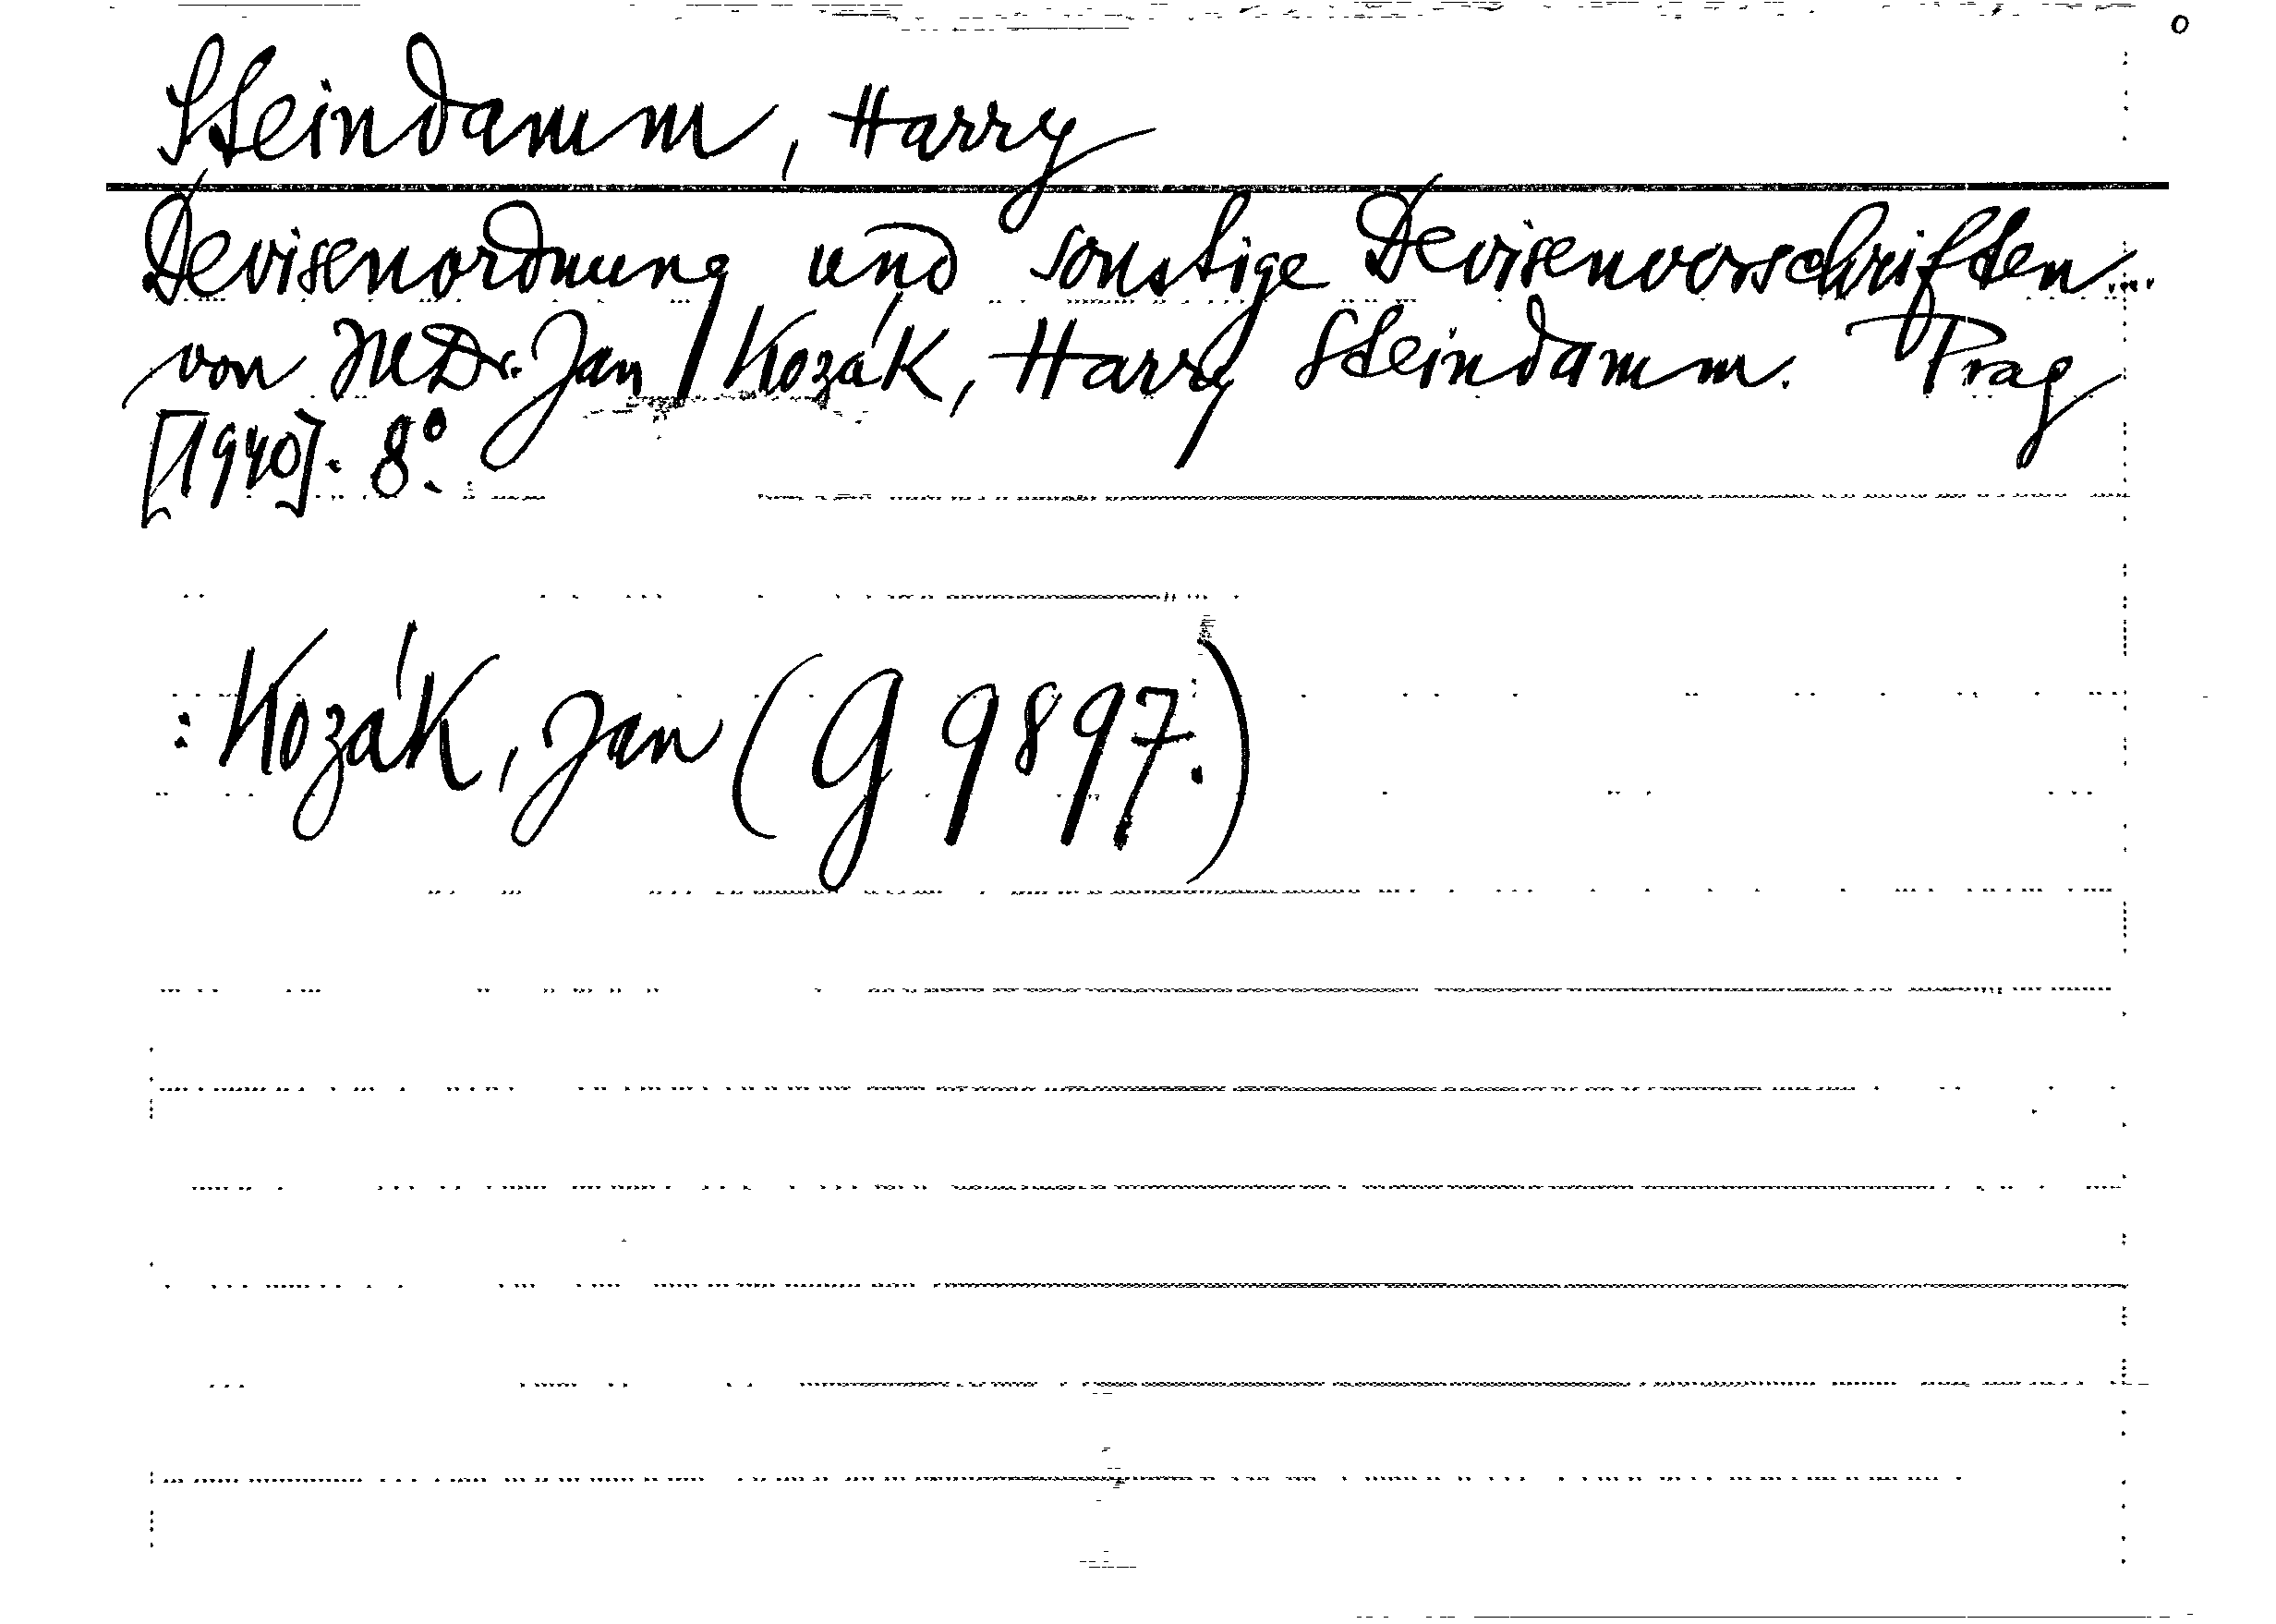 Steindamm, Harry
Devisenordnung und sonstige Devisenvorschriften...
von JUDr. Jan Kozák, Harry Steindamm. Prag
[1940]. 8°.
: Kozák, Jan (G 9897.)